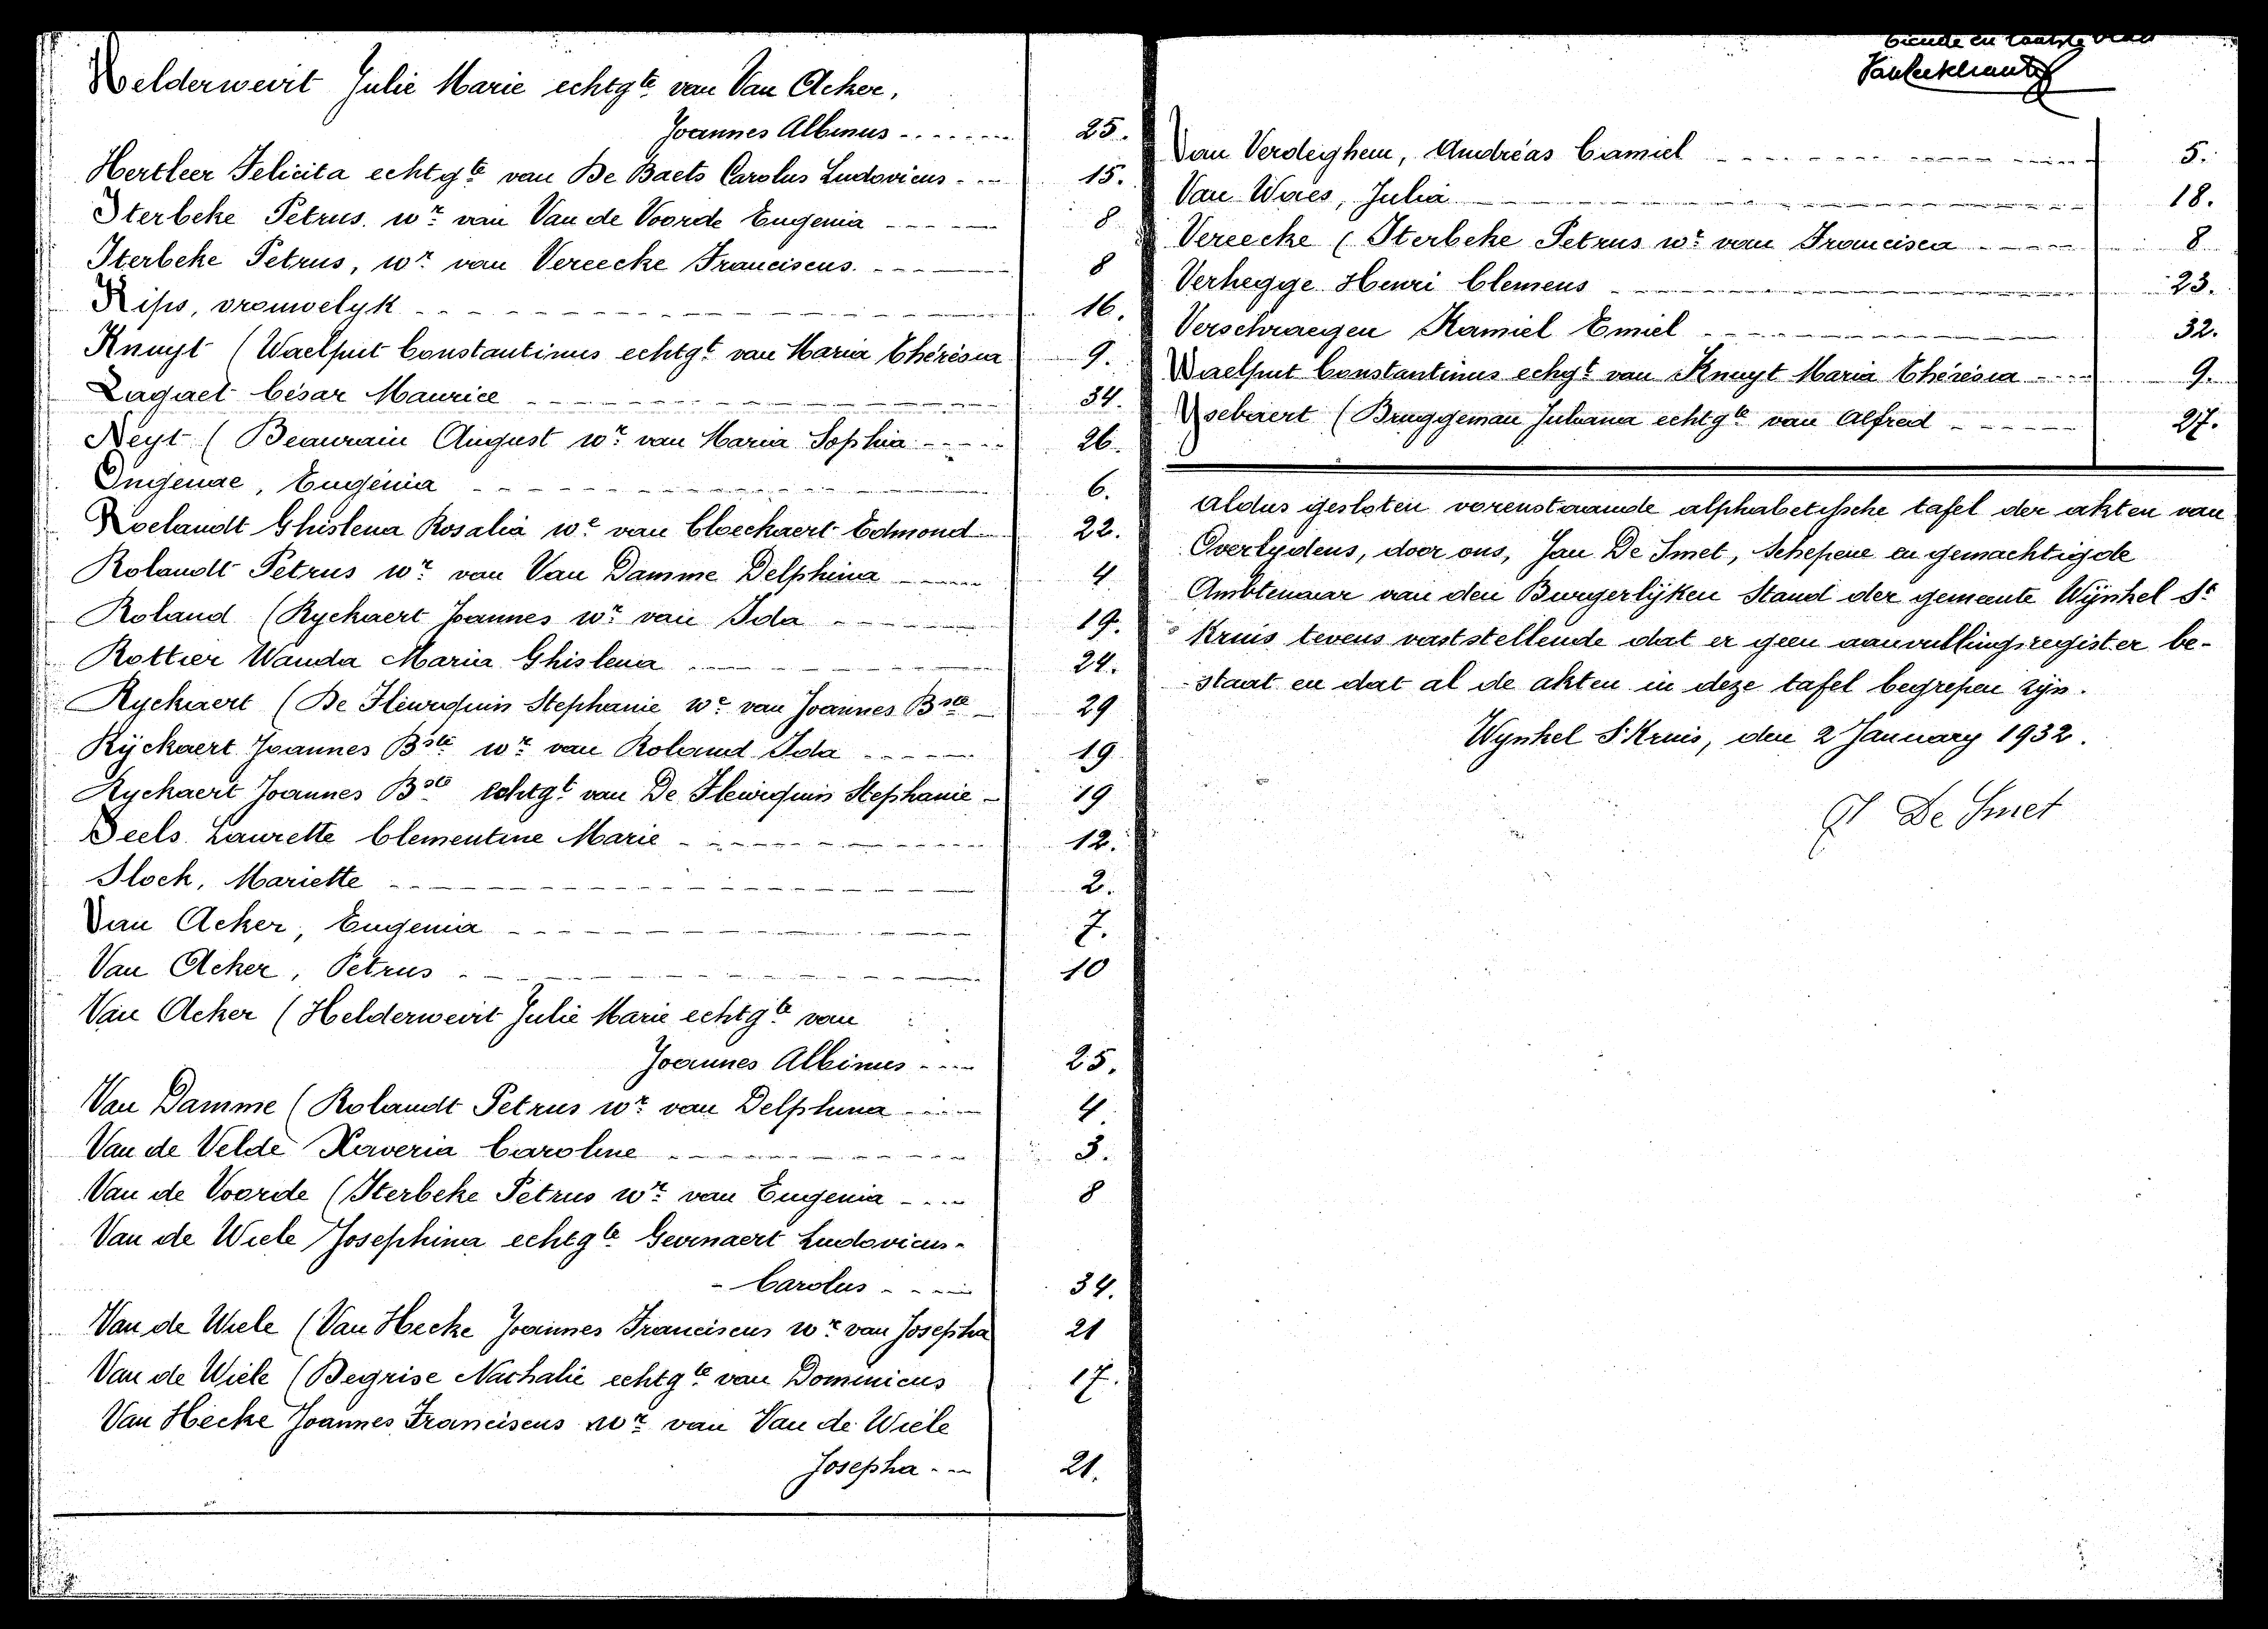 Helderweirt Julie Marie echtgte van Van Acker,
Joannes Albinus 25.
Hertleer Felicita echtgte van De Baets Carolus Ludovicus 15.
Iterbeke Petrus. wr van Van de Voorde Eugenia 8
Iterbeke Petrus, wr van Vereecke Franciscus. 8
Kips, vrouwelyk 16.
Knuyt (Waelput Constantinus echtgt van Maria Thérèsia 9.
Lagaet César Maurice 34.
Neyt (Beaurain August wr van Maria Sophia 26.
Ongenae, Eugenia 6.
Roelandt Ghislena Rosalia we van Cloeckaert Edmond 22.
Rolandt Petrus wr van Van Damme Delphina 4
Roland (Ryckaert Joannes wr van Ida 19.
Rottier Wanda Maria Ghislena 24.
Ryckaert (De Stephanie we van Joannes Bste 29
Ryckaert Joannes Bste wr van Roland Ida 19
Ryckaert Joannes Bste echtgt van De Stephanie 19
Seels Laurette Clementine Marie 12.
Stock, Mariette 2.
Van Acker, Eugenia 7.
Van Acker, Petrus 10
Van Acker (Helderweirt Julie Marie echtgte van
Joannes Albinus 25.
Van Damme (Rolandt Petrus wr van Delphina 4.
Van de Velde Xaveria Caroline 3.
Van de Voorde (Iterbeke Petrus wr van Eugenia 8
Van de Wiele Josephina echtgte Gevenaert Ludovicus-
- Carolus 34.
Van de Wiele (Van Hecke Joannes Franciscus wr van Josepha 21
Van de Wiele (Begrise Nathalie echtgte van Dominicus 17.
Van Hecke Joannes Franciscus wr van Van de Wiele
Josepha 21.
en laatste blad
Van Verdeghem, Andréas Camiel 5.
Van Waes, Julia 18.
Vereecke (Iterbeke Petrus wr van Francisca 8
Verhegge Henri Clemens 23.
Verschraegen Kamiel Emiel 32.
Waelput Constantinus echgt van Knuyt Maria Thérèsia 9.
Ysebaert (Bruggeman Juliana echtgte van Alfred 27.
Aldus gesloten vorenstaande alphabetische tafel der akten van
Overlydens, door ons, Jan De Smet, Schepene en gemachtigde
Ambtenaar van den Burgerlyken Stand der gemeente Wynkel St
Kruis tevens vaststellende dat er geen aanvullingsregister be-
-staat en dat al de akten in deze tafel begrepen zyn.
Wynkel St Kruis, den 2 January 1932.
De Smet